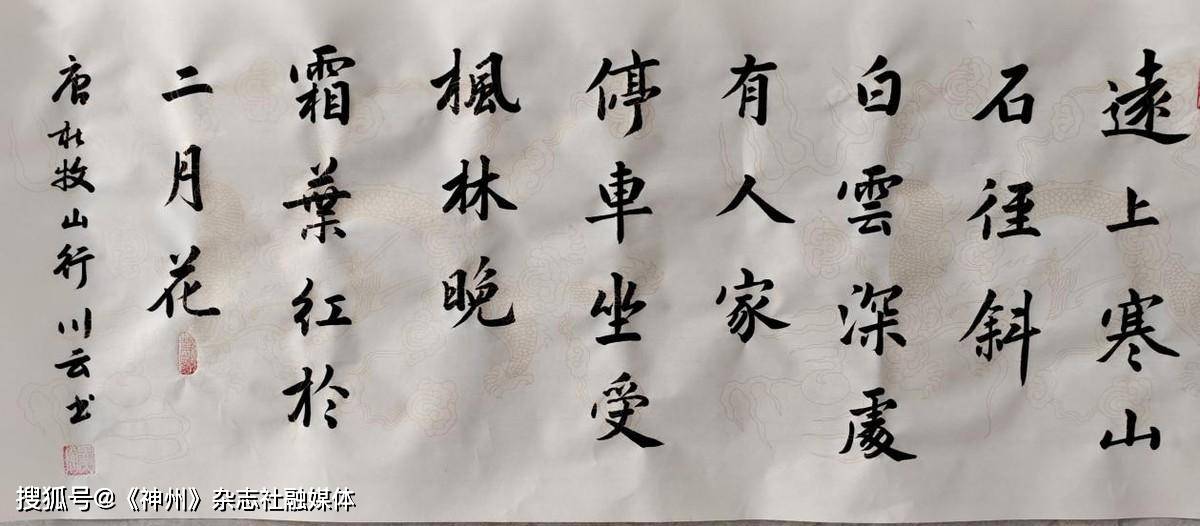 遠上寒山
石徑斜
白雲深處
有人家
停車坐受
楓林晚
霜葉红於
二月花
唐杜牧山行 川云书
搜狐号@《神州》杂志社融媒体